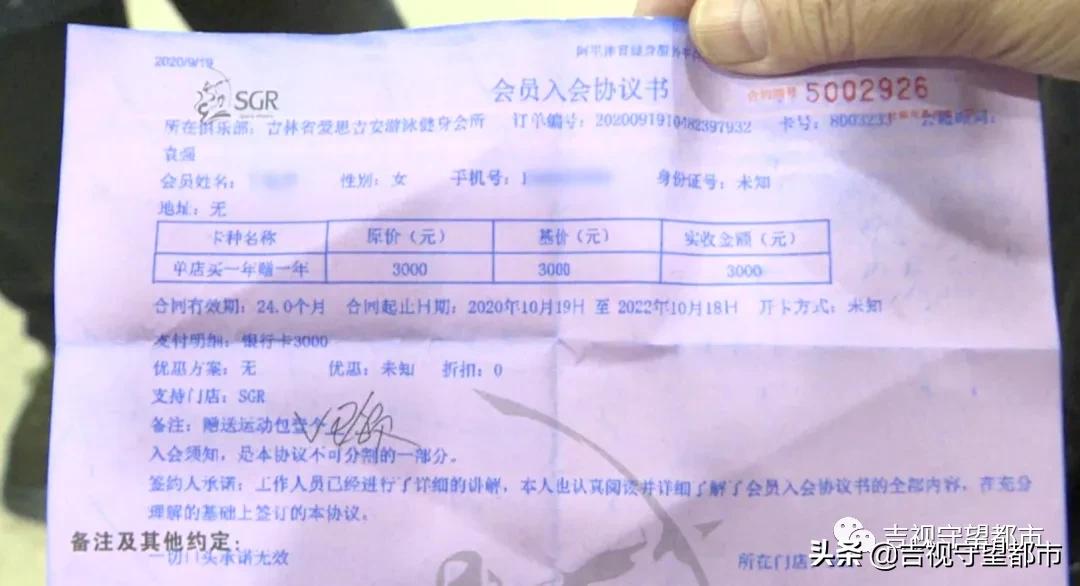 2020/9/19
SGR
会员入会协议书
合同编号 5002926
所在俱乐部：吉林省爱思吉安游泳健身会所 订单编号：2020091910482397932 卡号：8003233
袁强
会员姓名： 性别：女 手机号：1 身份证号：未知
地址：无
卡种名称 原价（元） 基价（元） 实收金额（元）
单店买一年赠一年 3000 3000 3000
合同有效期：24.0个月 合同起止日期：2020年10月19日 至 2022年10月18日 开卡方式：未知
支付明细：银行卡3000
优惠方案：无 优惠：未知 折扣：0
支持门店：SGR
备注：赠送运动包壹个
入会须知，是本协议不可分割的一部分。
签约人承诺：工作人员已经进行了详细的讲解，本人也认真阅读并详细了解了会员入会协议书的全部内容，在充分
理解的基础上签订的本协议。
备注及其他约定：
一切口头承诺无效
所在门店
吉视守望都市
头条 @吉视守望都市